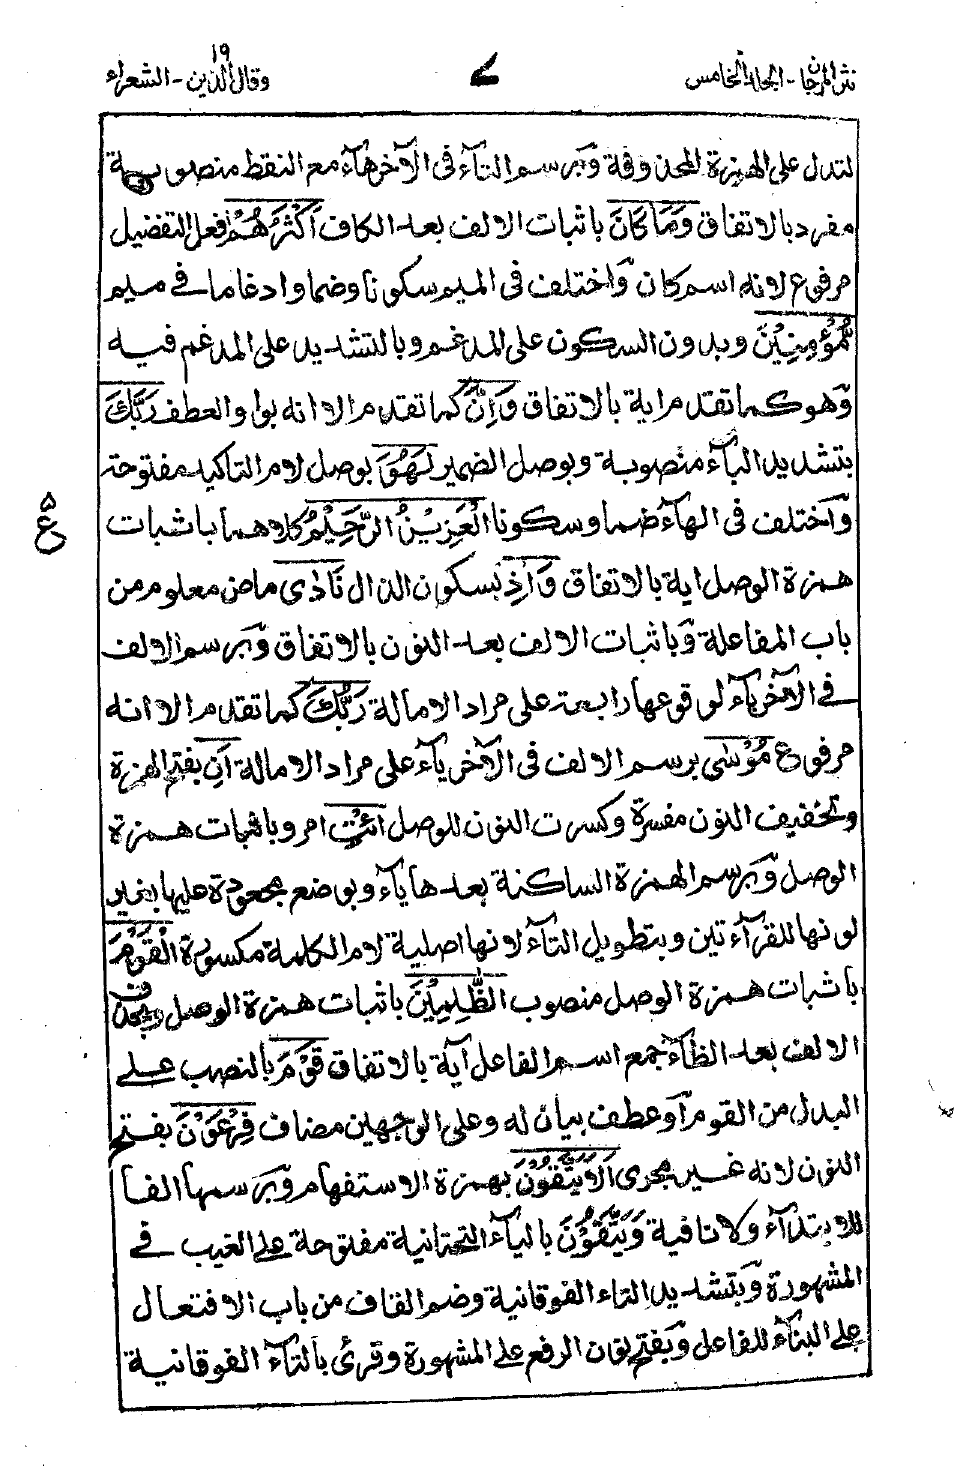 نثر المرجان - المجلد الخامس
٧
وقال الذين ١٩ - الشعراء
لتدل على الهمزة المحذوفة وبرسم التآء فى الآخر هآء مع النقط منصوبة
مفرد بالاتفاق وَمَا كَانَ باثبات الالف بعد الكاف اَكْثَرُهُمْ افعل التفضيل
مرفوع لانه اسم كان واختلف فى الميم سكونا وضما وادغاما فے ميم
مُّؤْمِنِيْنَ وبدون السكون على المدغم وبالتشديد على المدغم فيه
وهو كما تقدم اية بالاتفاق وَاِنَّ كما تقدم الا انه بواو العطف رَبَّكَ
بتشديد البآء منصوبة وبوصل الضمير لَهُوَ بوصل لام التاكيد مفتوحة
واختلف فى الهآء ضما وسكونا الْعَزِيْزُ الرَّحِيْمُ كلاهما باثبات
ع ٥
همزة الوصل اية بالاتفاق وَاِذْ بسكون الذال نَادٰى ماض معلوم من
باب المفاعلة وباثبات الالف بعد النون بالاتفاق وبرسم الالف
فے الآخر يآء لوقوعها رابعة على مراد الامالة رَبُّكَ كما تقدم الا انه
مرفوع مُوْسٰى برسم الالف فى الآخر يآء على مراد الامالة اَنِ بفتح الهمزة
وتخفيف النون مفسرة وكسرت النون للوصل ائْتِ امر وباثبات همزة
الوصل وبرسم الهمزة الساكنة بعدها يآء وبوضع مجعودة عليها بغير
لونها للقرآءتين وبتطويل التآء لانها اصلية لام الكلمة مكسورة الْقَوْمَ
باثبات همزة الوصل منصوب الظّٰلِمِيْنَ باثبات همزة الوصل وبحذف
الالف بعد الظآء جمع اسم الفاعل آية بالاتفاق قَوْمَ بالنصب علے
البدل من القوم او عطف بيان له وعلى الوجهين مضاف فِرْعَوْنَ بفتح
النون لانه غير مجرى اَلَا يَتَّقُوْنَ بهمزة الاستفهام وبرسمها الفا
للابتدآء ولا نافية وَيَتَّقُوْنَ باليآء التحتانية مفتوحة على الغيب فے
المشهورة وبتشديد التاء الفوقانية وضم القاف من باب الافتعال
على البنآء للفاعل وبفتح نون الرفع على المشهورة وقرئ بالتآء الفوقانية